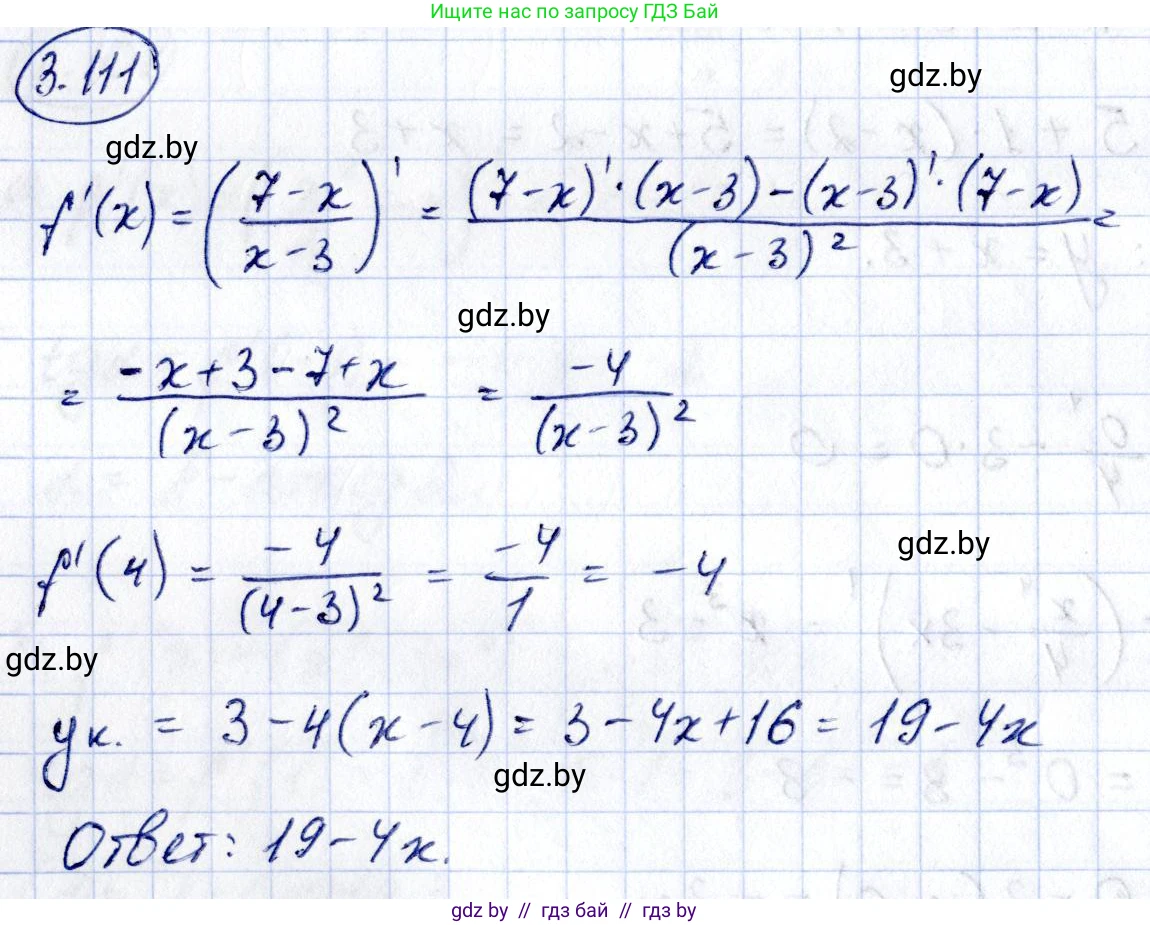 Ищите нас по запросу ГДЗ Бай
3.111
gdz.by
gdz.by
f'(x) = ((7-x)/(x-3))' = ((7-x)'·(x-3)-(x-3)'·(7-x))/(x-3)² =
gdz.by
= (-x+3-7+x)/(x-3)² = -4/(x-3)²
gdz.by
f'(4) = -4/(4-3)² = -4/1 = -4
gdz.by
yк. = 3-4(x-4) = 3-4x+16 = 19-4x
gdz.by
Ответ: 19-4x.
gdz by // гдз бай // гдз by